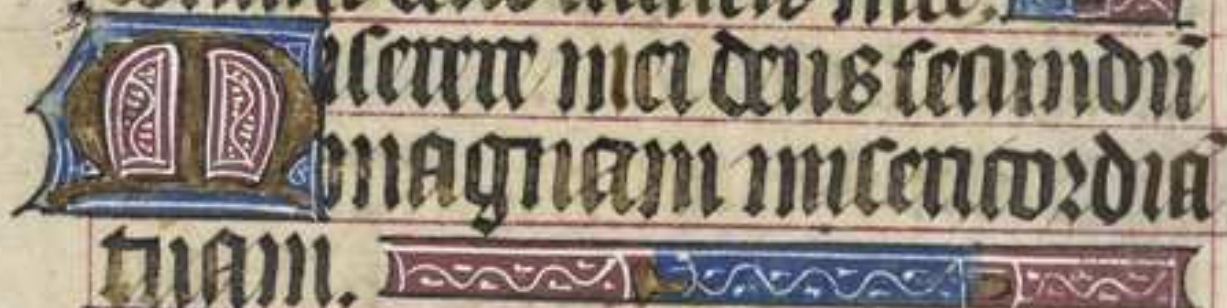 Miserere mei deus secundū
magnam misericordia
tuam.